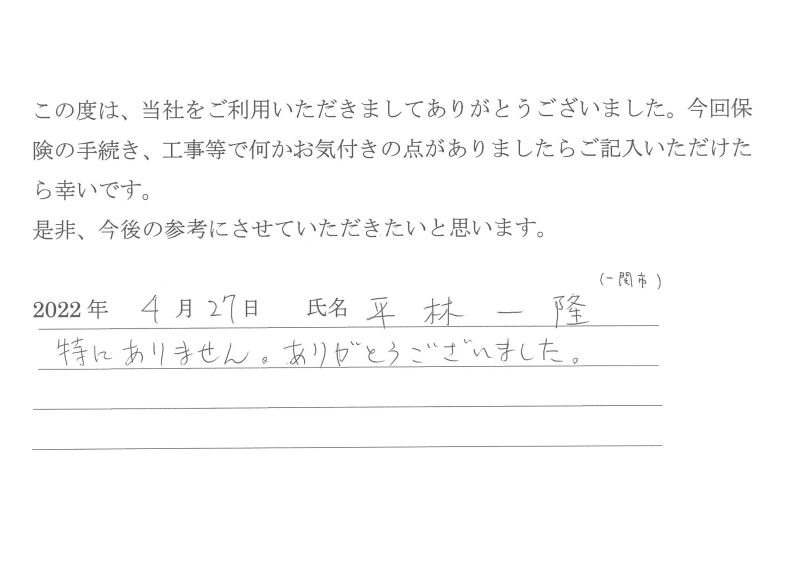 この度は、当社をご利用いただきましてありがとうございました。今回保
険の手続き、工事等で何かお気付きの点がありましたらご記入いただけた
ら幸いです。
是非、今後の参考にさせていただきたいと思います。
(一関市)
2022年 4月27日 氏名 平林一隆
特にありません。ありがとうございました。